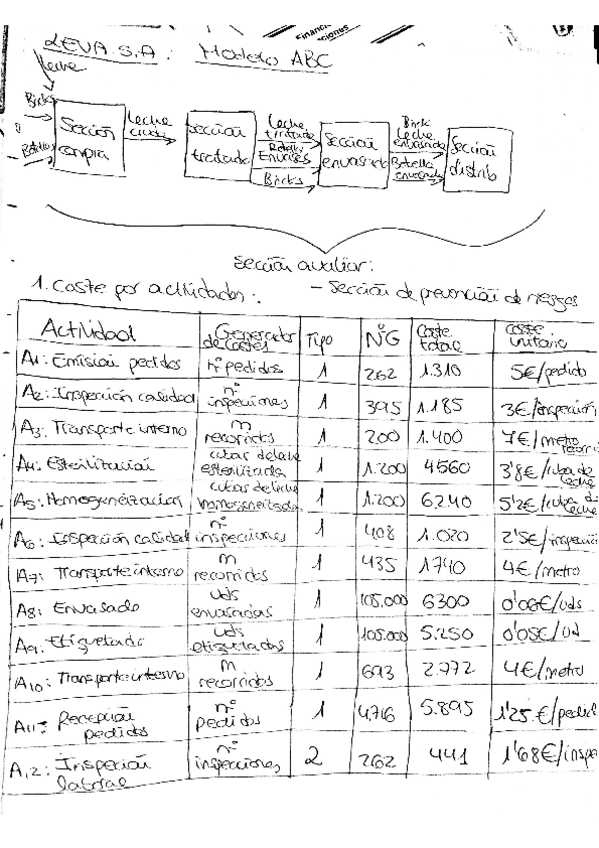 Financi
ciones
LEVA S.A: Modelo ABC
leche
Bricks
Botellas
Sección compra
leche cruda
Sección tratado
Leche tratada
Botella
Envases
Bricks
Sección envasado
Brick
Leche envasada
Botella envasada
Sección distrib
Sección auxiliar:
1. Coste por actividades:
- Sección de prevención de riesgos
Actividad | Generador de costes | Tipo | NºG | Coste total | Coste unitario
A1: Emisión pedidos | nº pedidos | 1 | 262 | 1.310 | 5€/pedido
A2: Inspección calidad | nº inspecciones | 1 | 395 | 1.185 | 3€/inspección
A3: Transporte interno | m recorridos | 1 | 200 | 1.400 | 7€/metro
A4: Esterilización | cubas de leche esterilizada | 1 | 1.200 | 4560 | 3'8€/cuba de leche
A5: Homogeneización | cubas de leche homogeneizada | 1 | 1.200 | 6.240 | 5'2€/cuba de leche
A6: Inspección calidad | nº inspecciones | 1 | 408 | 1.020 | 2'5€/inspecci
A7: Transporte interno | m recorridos | 1 | 435 | 1740 | 4€/metro
A8: Envasado | uds envasadas | 1 | 105.000 | 6300 | 0'06€/uds
A9: Etiquetado | uds etiquetadas | 1 | 105.000 | 5.250 | 0'05€/ud
A10: Transporte interno | m recorridos | 1 | 693 | 2.772 | 4€/metro
A11: Recepción pedidos | nº pedidos | 1 | 4.716 | 5.895 | 1'25€/pedid
A12: Inspección laboral | nº inspecciones | 2 | 262 | 441 | 1'68€/inspe